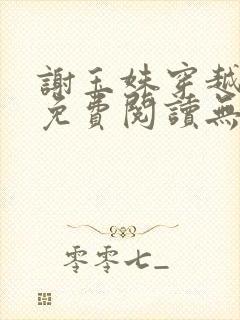 謝玉妹穿越
免費閱讀無
零零七_